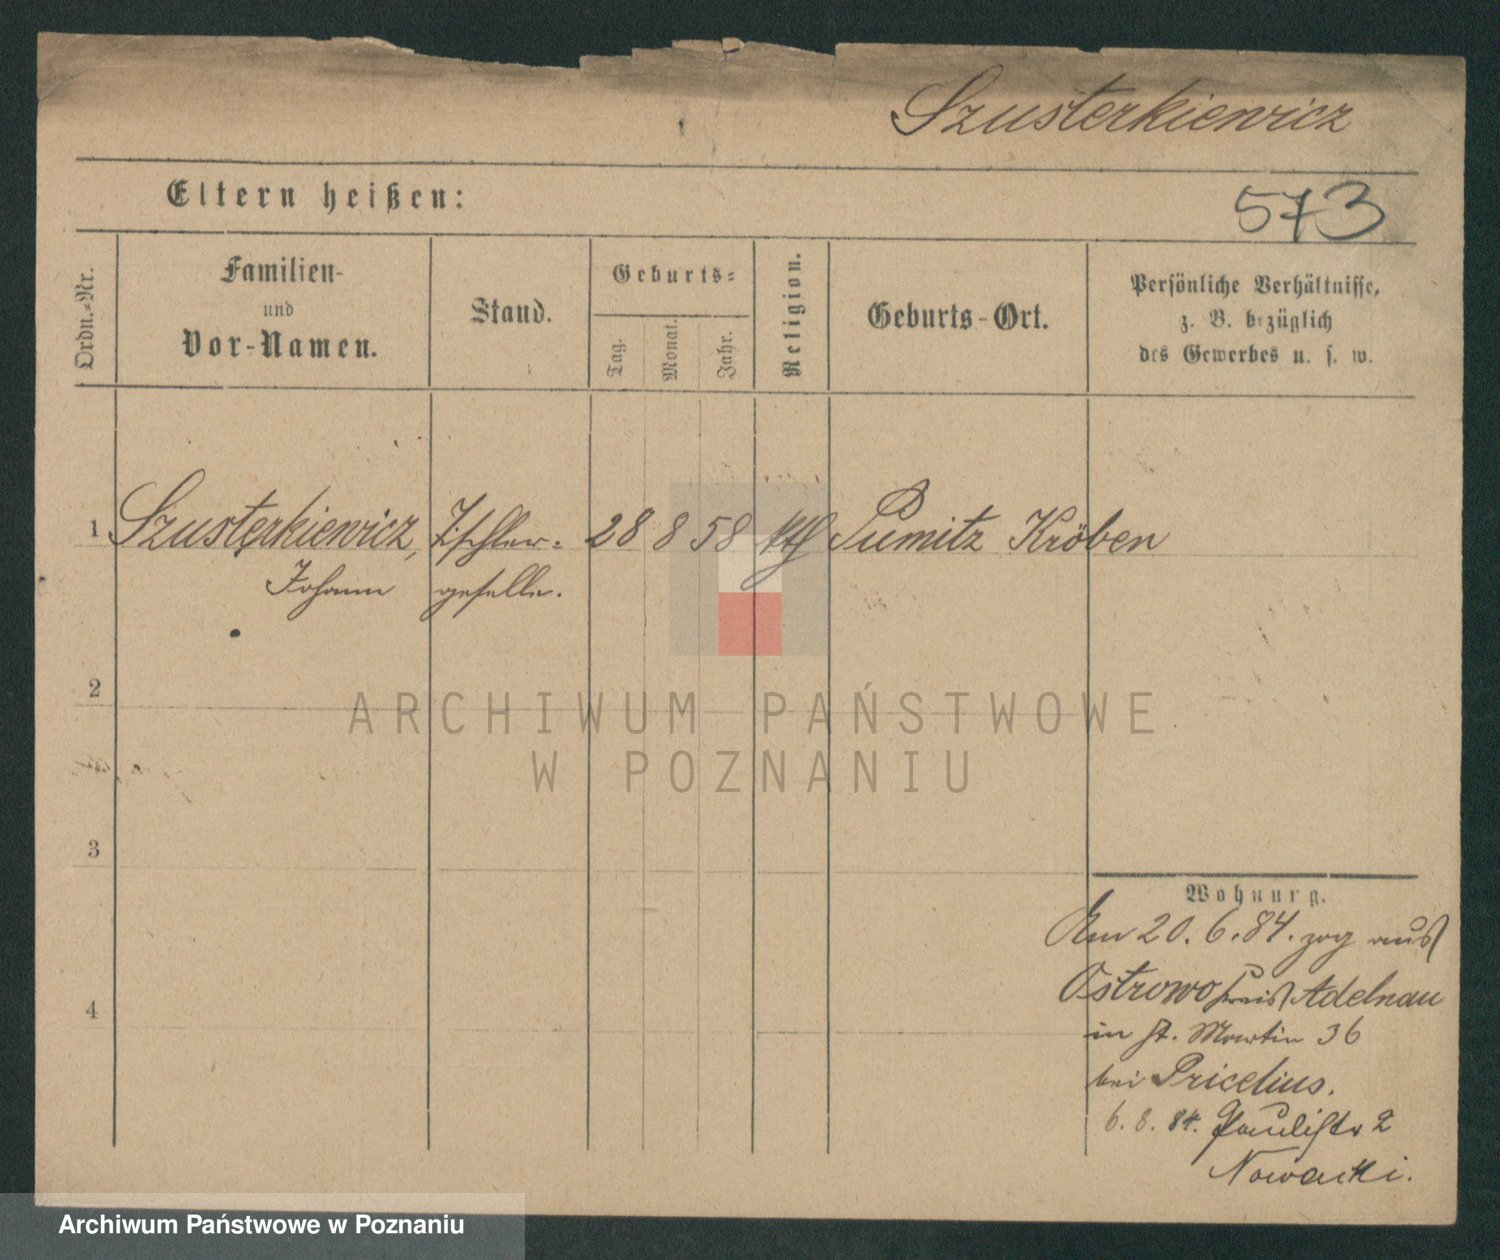 Szusterkiewicz
Eltern heißen:
573
Ordn.-Nr.
Familien-
und
Vor-Namen.
Stand.
Geburts-
Tag.
Monat.
Jahr.
Religion.
Geburts-Ort.
Persönliche Verhältnisse,
z. B. bezüglich
des Gewerbes u. s. w.
1 Szusterkiewicz, Tischler- 28 8 58 kth Pumitz Kröben
Johann geselle.
2
ARCHIWUM PAŃSTWOWE
W POZNANIU
3
Wohnung.
Am 20. 6. 84. zog aus
Ostrowo Kreis Adelnau
4
in St. Martin 36
bei Pricelius.
6. 8. 84. Paulistr 2
Nowacki.
Archiwum Państwowe w Poznaniu